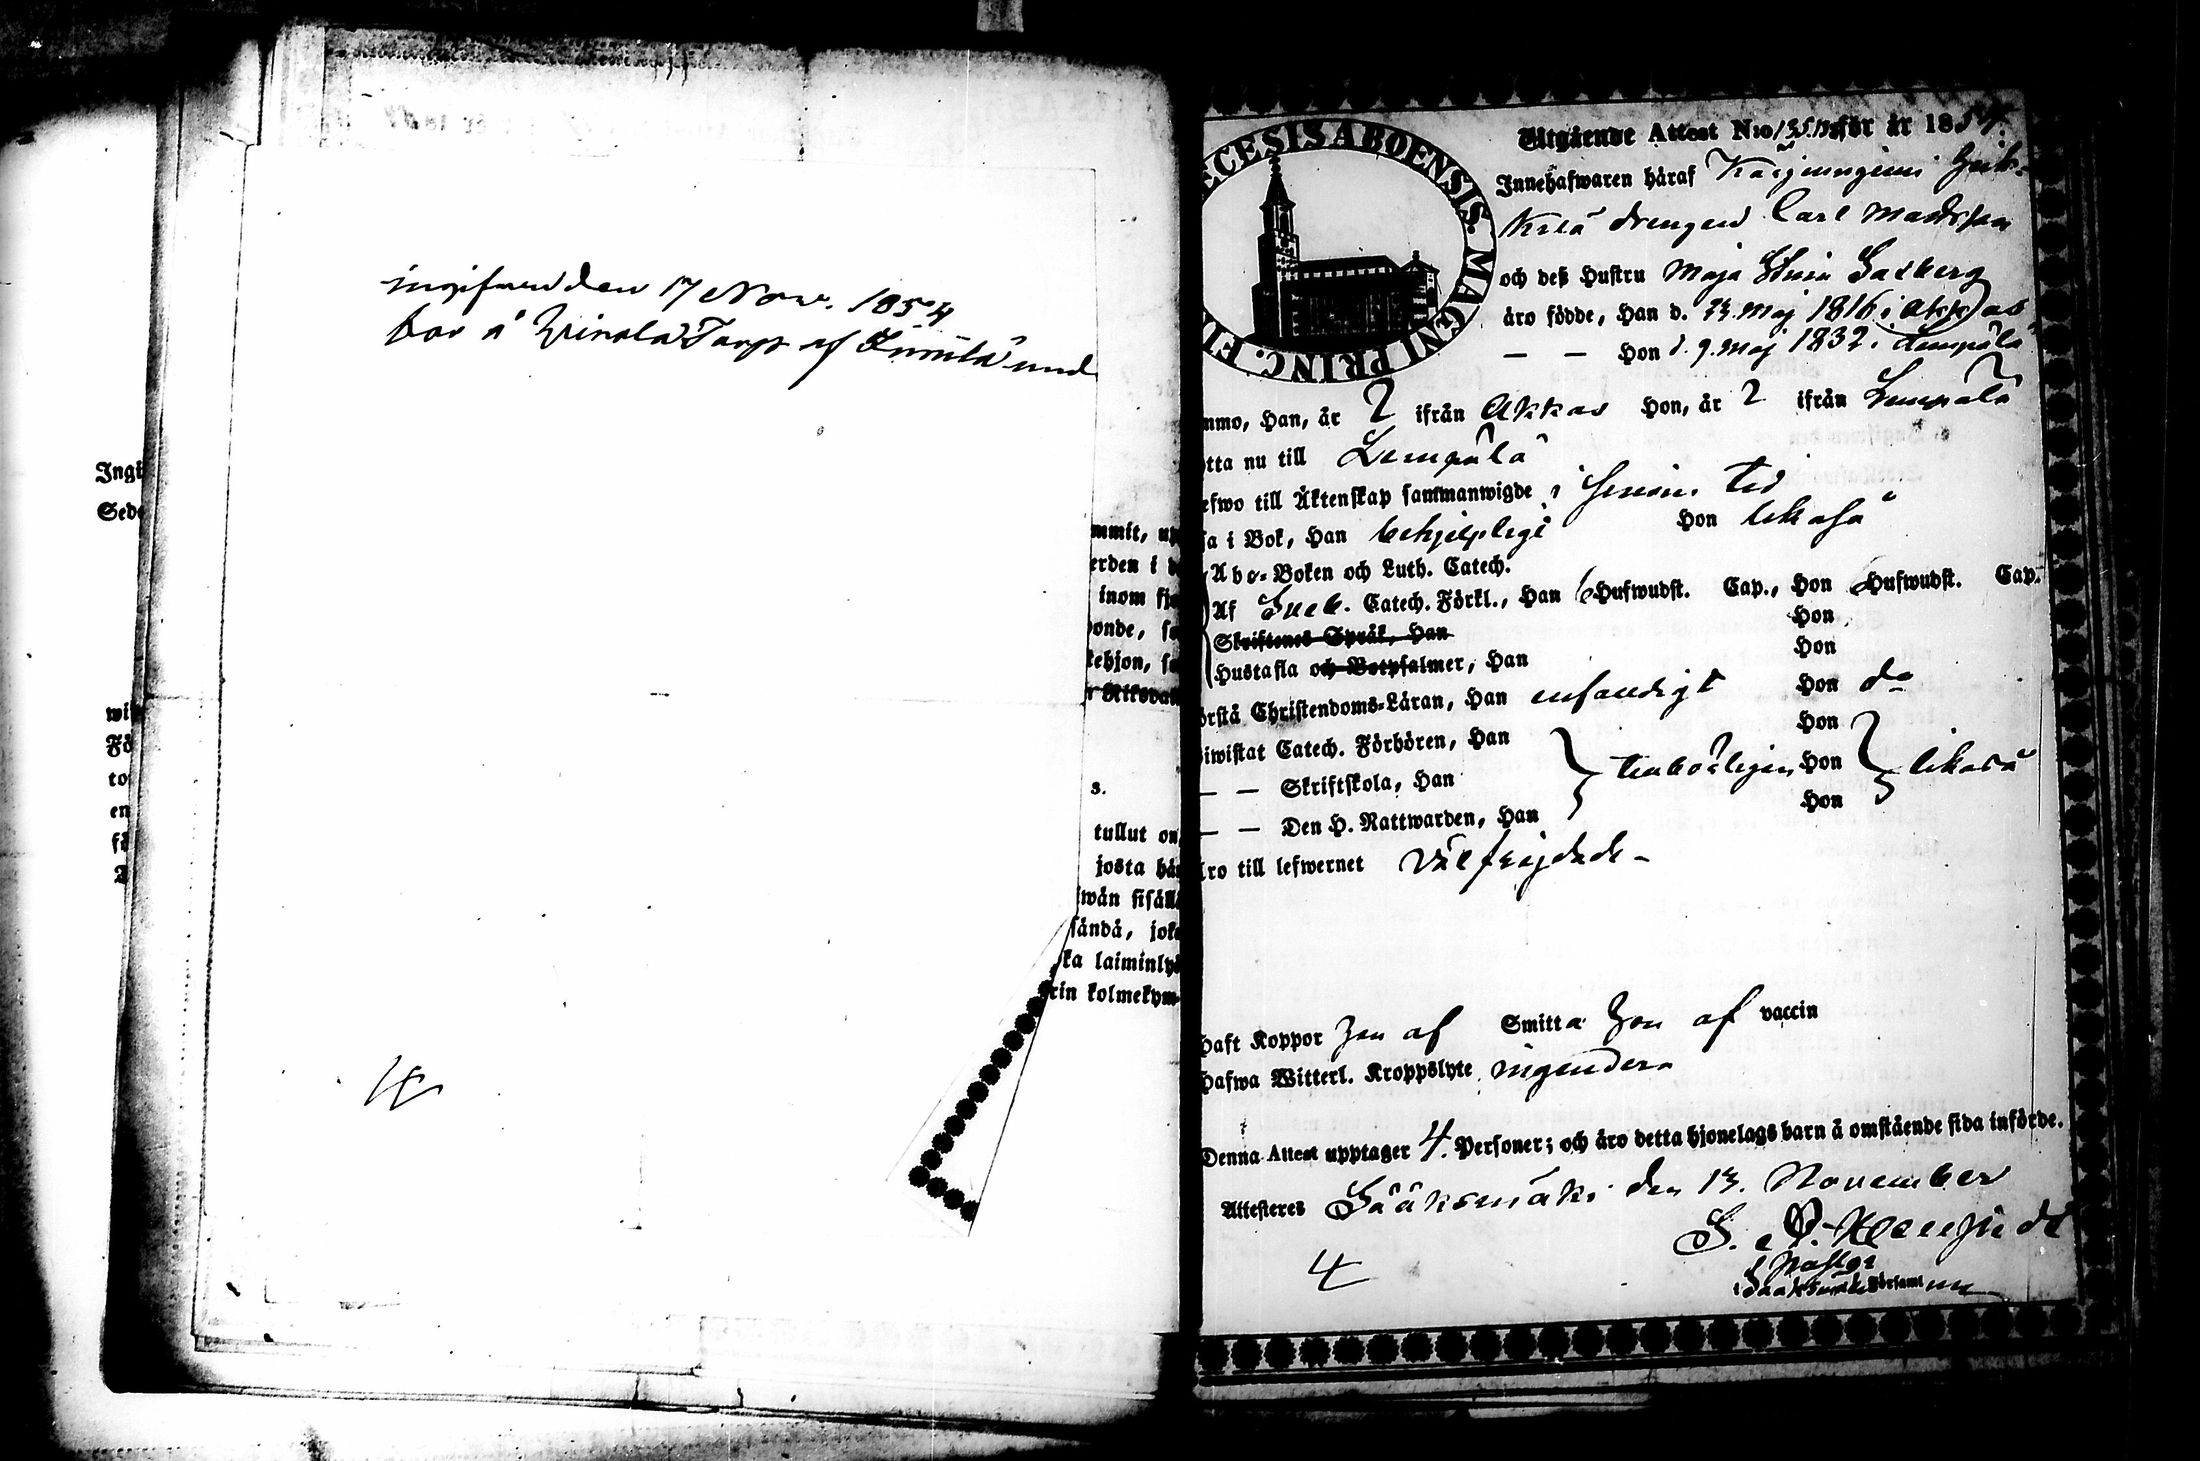 ingifwen den 17 Nov. 1854
bor å Torp af
Ingi
Sede
wi
Fö
to
en
fö
mmit, up
erden i
inom
onde,
ebjon,
s.
tullut on
josta hä
wån sisäll
sändä, jok
ka laiminly
rin kolmekym
4
ECESIS ABOENSIS. MAGNI PRINC. FI
Utgående Attest N:o för år 1854.
Innehafwaren häraf
drengen Carl Mattsson
och deß Hustru Maja Stina Saxberg
äro födde, Han d. 23 Maj 1816 i Akkas
— — Hon d. 9. Maj 1832 i Lempälä
mmo, Han, år ? ifrån Akkas Hon, år ? ifrån Lempälä
tta nu till Lempälä
efwo till Äktenskap sammanwigde i tid
sa i Bok, Han behjelpligt Hon likaså
Abc-Boken och Luth. Catech.
Af Sveb. Catech. Förkl., Han 6 Hufwudst. Cap., Hon 6 Hufwudst. Cap.
Skriftenes Språk, Han Hon
Hustafla och Botpsalmer, Han Hon
örstå Christendoms-Läran, Han enfaldigt Hon do
iwistat Catech. Förhören, Han Hon
— — Skriftskola, Han Hon likaså
— — Den H. Nattwarden, Han Hon
äro till lefwernet välfrejdade
haft Koppor Han af Smitta Hon af vaccin
hafwa Witterl. Kroppslyte ingendera
Denna Attest upptager 4. Personer; och äro detta hjonelags barn å omstående sida införde.
Attesteres Sääksmäki den 13. November
Pastor
i Sääksmäki Församl
4